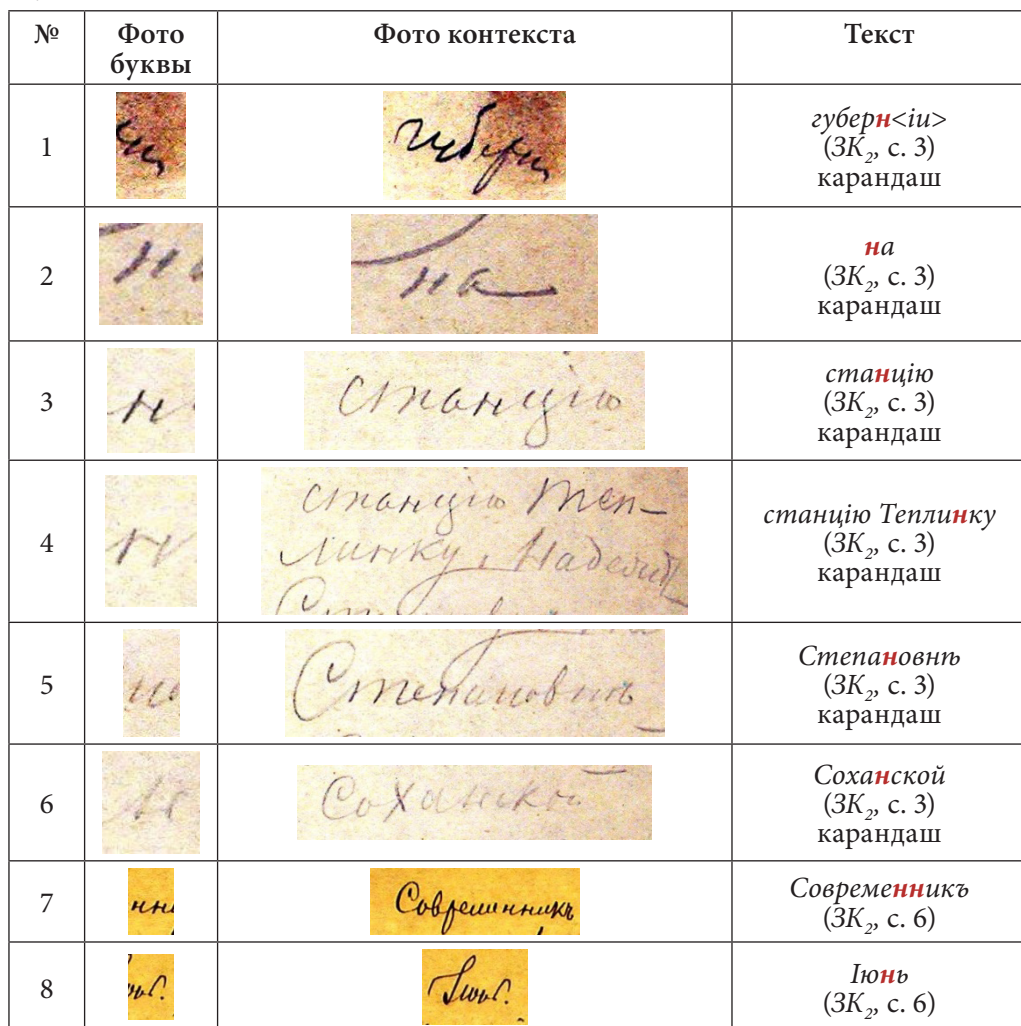 № Фото буквы Фото контекста Текст
1 губерн губерн<іи>
(ЗК₂, с. 3)
карандаш
2 на на
(ЗК₂, с. 3)
карандаш
3 н станцію станцію
(ЗК₂, с. 3)
карандаш
4 н станцію Теп-
линку, Надежд
станцію Теплинку
(ЗК₂, с. 3)
карандаш
5 Степановнѣ Степановнѣ
(ЗК₂, с. 3)
карандаш
6 Соханской Соханской
(ЗК₂, с. 3)
карандаш
7 нн Современникъ Современникъ
(ЗК₂, с. 6)
8 Іюнь Іюнь
(ЗК₂, с. 6)